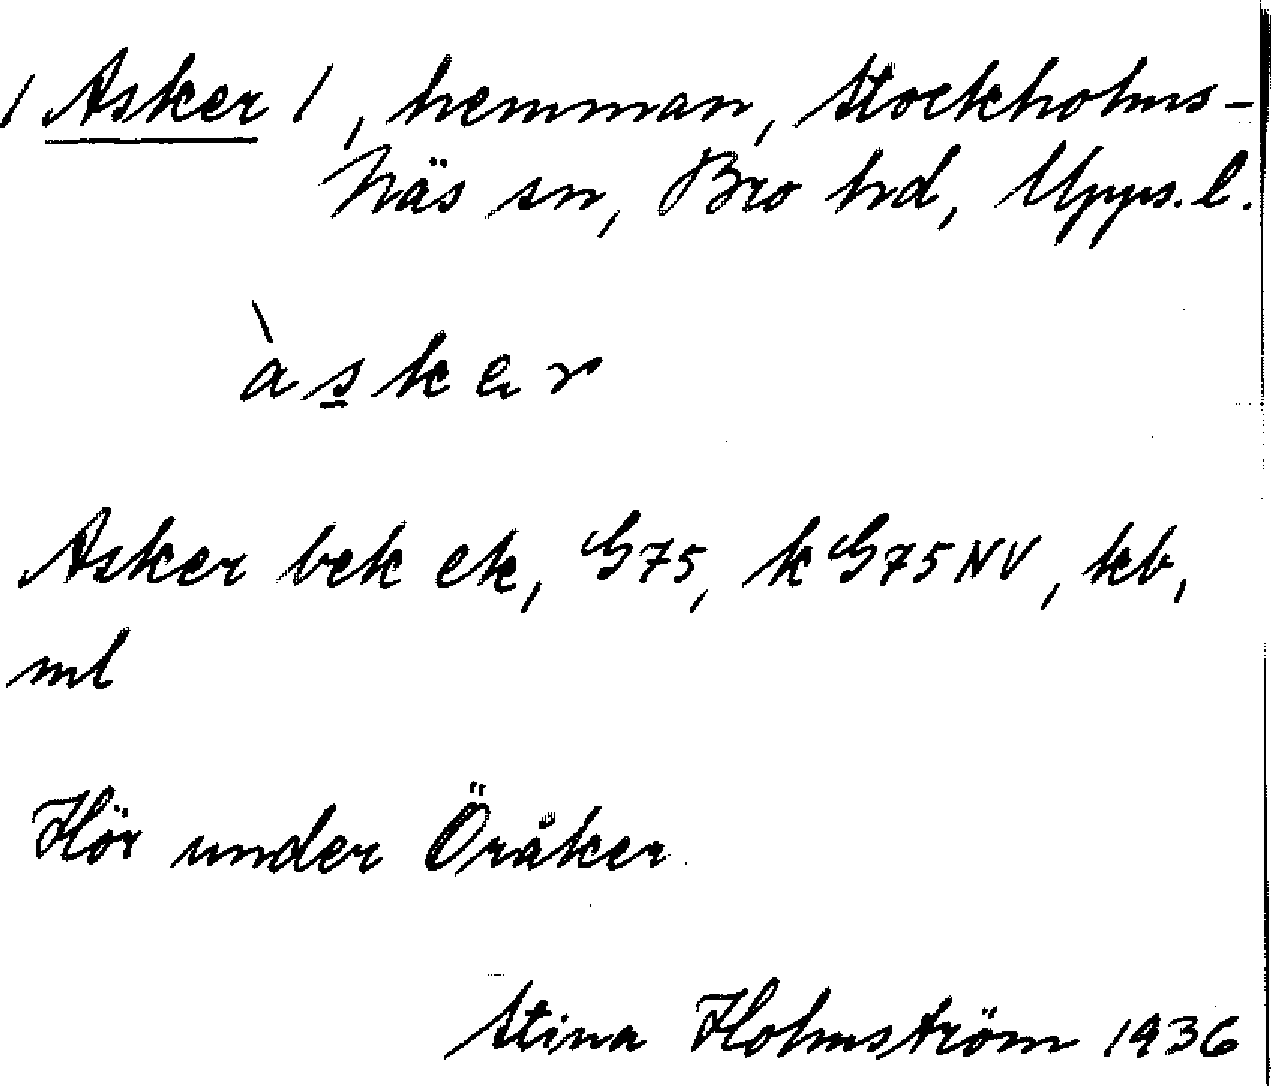 / Asker /, hemman, Stockholms-
Näs sn, Bro hd, Upps. l.
àsker
Asker bek ek, G75, k G75 NV, kb,
ml
Hör under Öråker.
Stina Holmström 1936